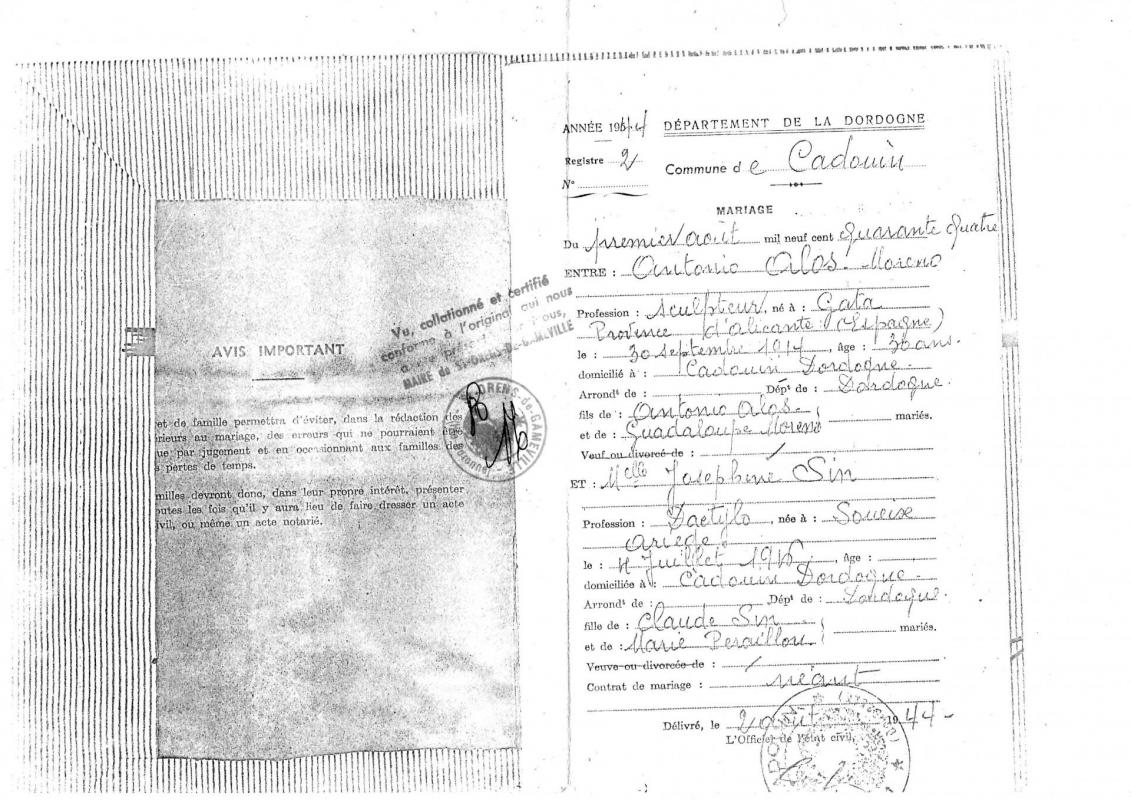 AVIS IMPORTANT
et de famille permettra d'éviter, dans la rédaction des
rieurs au mariage, des erreurs qui ne pourraient être
ue par jugement et en occasionnant aux familles des
s pertes de temps.
milles devront donc, dans leur propre intérêt, présenter
outes les fois qu'il y aura lieu de faire dresser un acte
ivil, ou même un acte notarié.
Vu, collationné et certifié
conforme à l'original qui nous
MAIRE de
ORENS-de-GAMEVILLE
ANNÉE 1944 DÉPARTEMENT DE LA DORDOGNE
Registre 2
Commune de Cadouin
N°
MARIAGE
Du premier août mil neuf cent quarante quatre
ENTRE : Antonio Alos Moreno
Profession : sculpteur, né à : Gata
Province d'alicante (Espagne)
le : 30 septembre 1914, âge : 30 ans.
domicilié à : Cadouin Dordogne.
Arrondt de : Dépt de : Dordogne.
fils de : Antonio Alos
et de : Guadaloupe Moreno mariés.
Veuf ou divorcé de :
ET : Melle Josephine Sin
Profession : Dactylo, née à : Soueise
Ariège
le : 4 Juillet, âge :
domiciliée à : Cadouin Dordogne.
Arrondt de : Dépt de : Dordogne.
fille de : Claude Sin
et de : Marie Peraillou mariés.
Veuve ou divorcée de :
Contrat de mariage : néant
Délivré, le 2 août 1944
L'Officier de l'état civil,